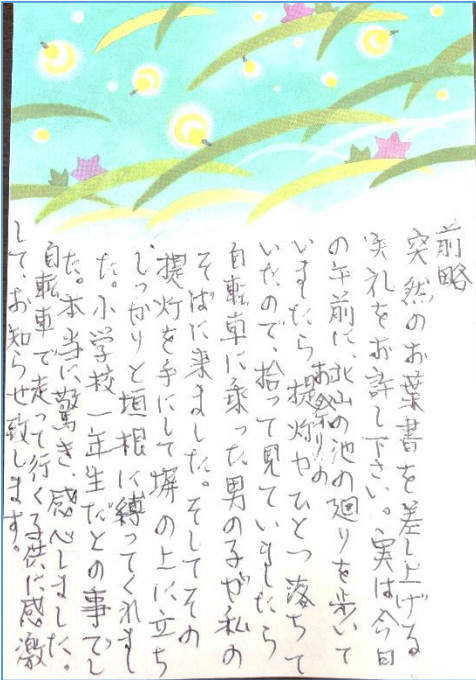 前略
突然のお葉書を差し上げる
失礼をお許し下さい。実は今日
の午前に、北山の池の廻りを歩いて
いましたらお祭りの提灯がひとつ落ちて
いたので、拾って見ていましたら
自転車に乗った男の子が私の
そばに来ました。そしてその
提灯を手にして塀の上に立ち
しっかりと垣根に縛ってくれまし
た。小学校一年生だとの事でし
た。本当に驚き、感心しました。
自転車で走って行く子供に感激
してお知らせ致します。